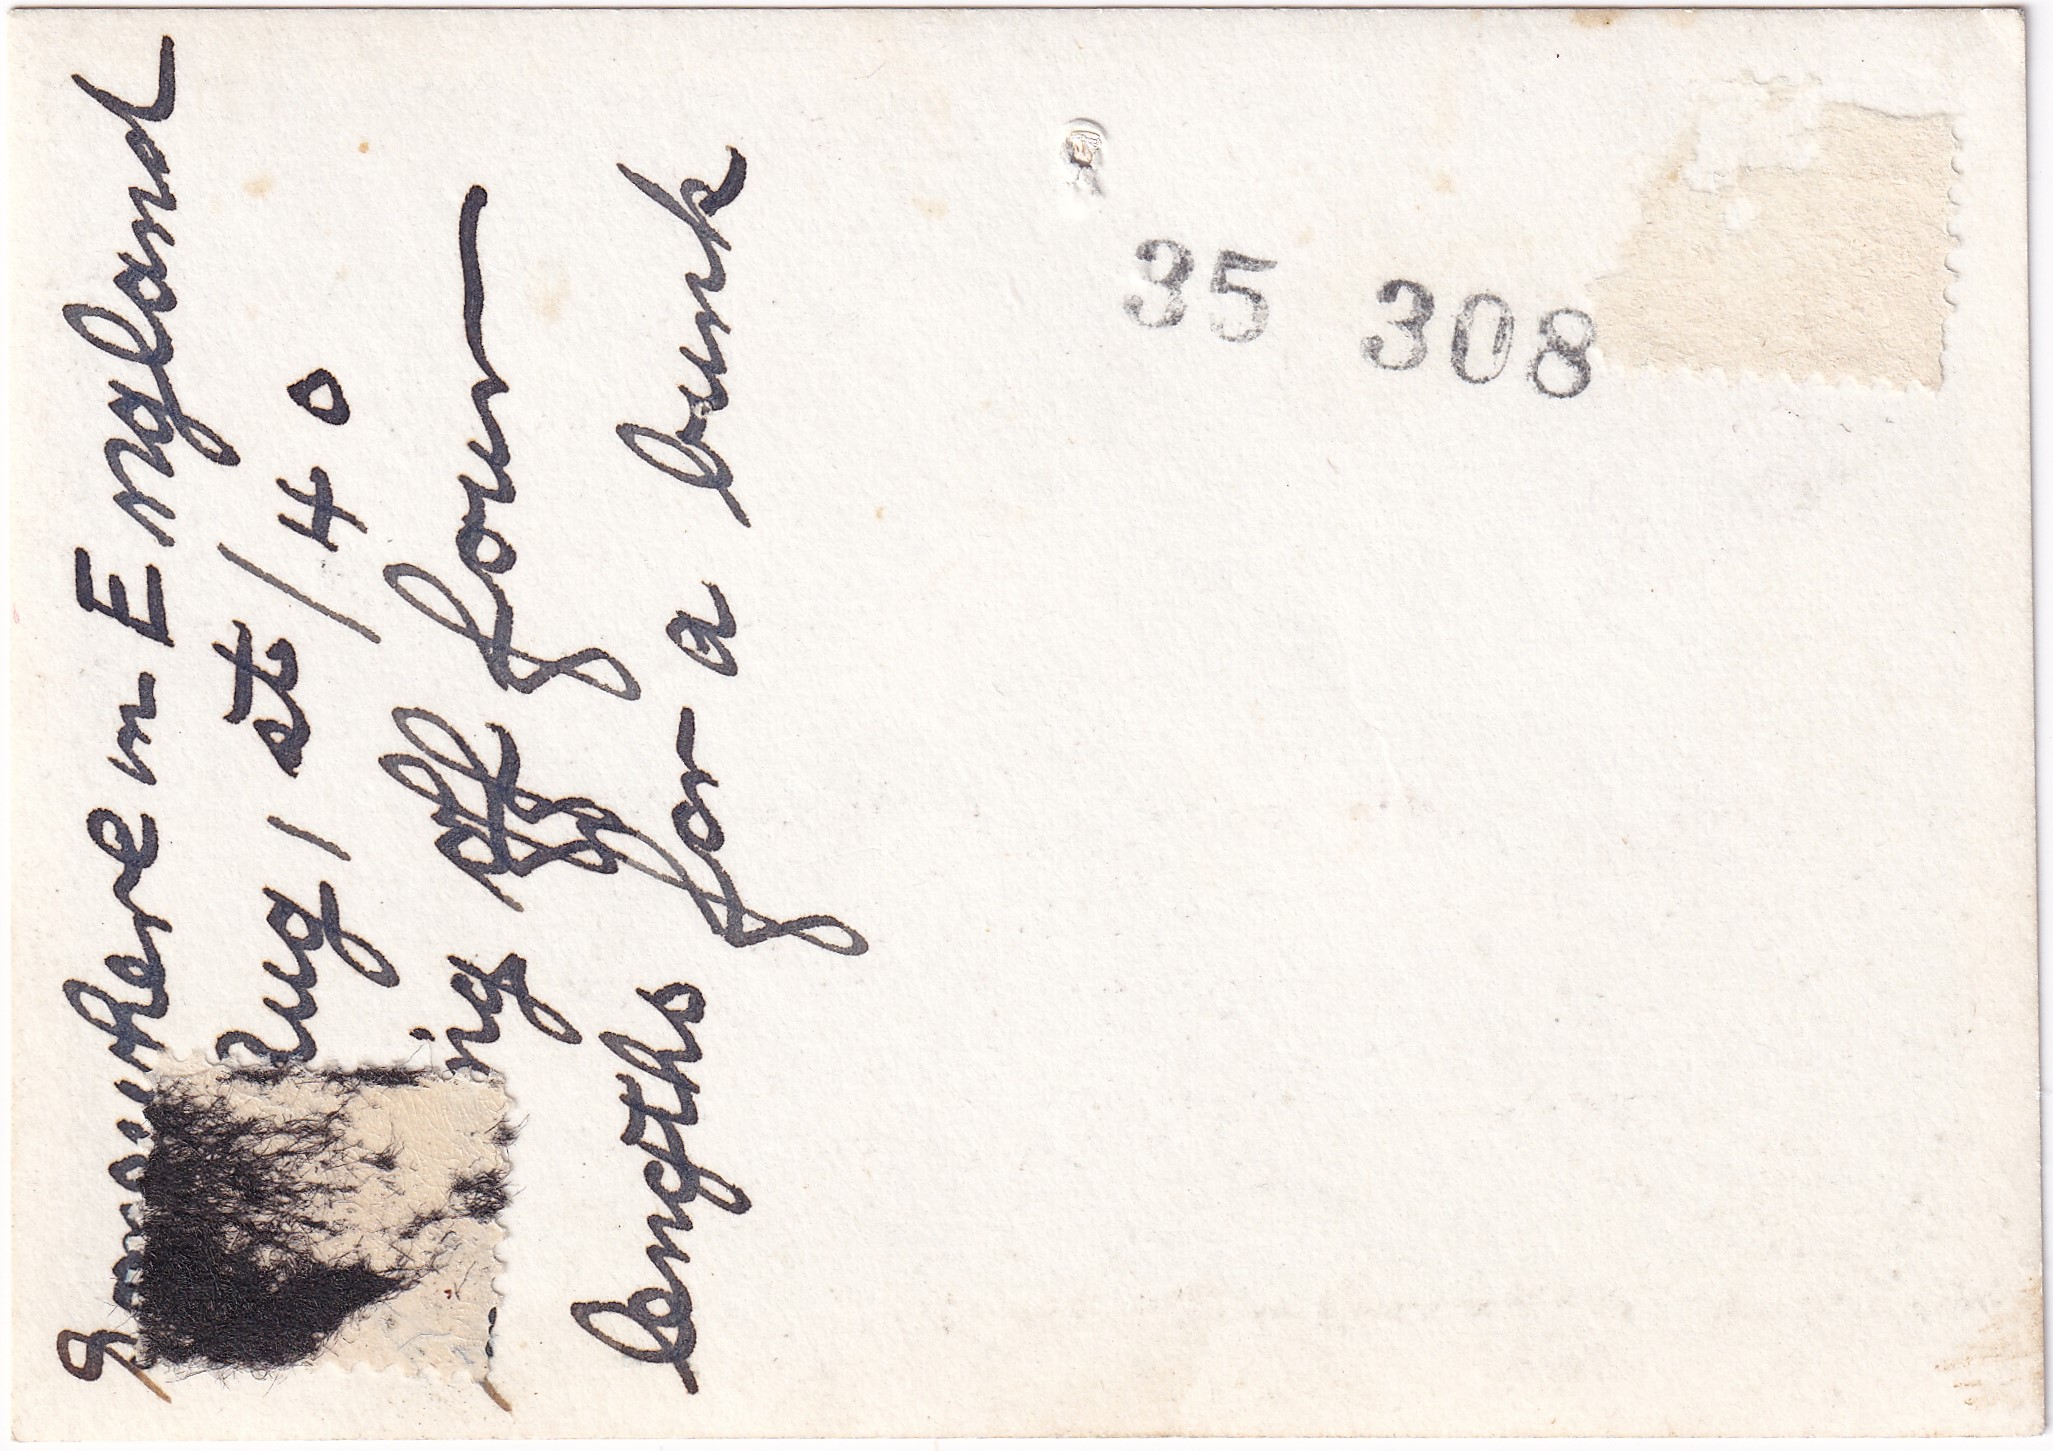 Somewhere in England
Aug, 1 st/40
ng off four
lengths for a bunk
35 308